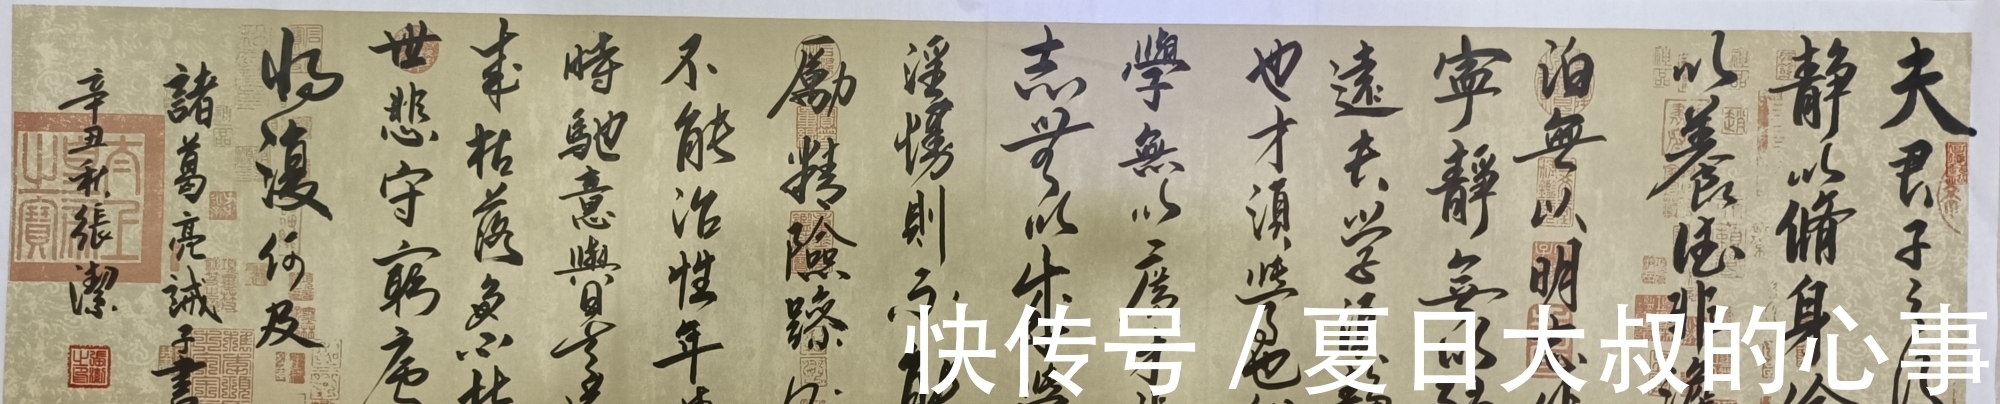 夫君子之
靜以脩身
以養德非澹
泊無以明志
寧靜無以致
遠夫學須靜
也才須學也
學無以廣才
志無以成學
淫慢則不能
勵精險躁
不能治性年
時馳意與日去
成枯落多不接
世悲守窮廬
將復何及
諸葛亮誡子書
辛丑秋張潔
快传号 / 夏日大叔的心事